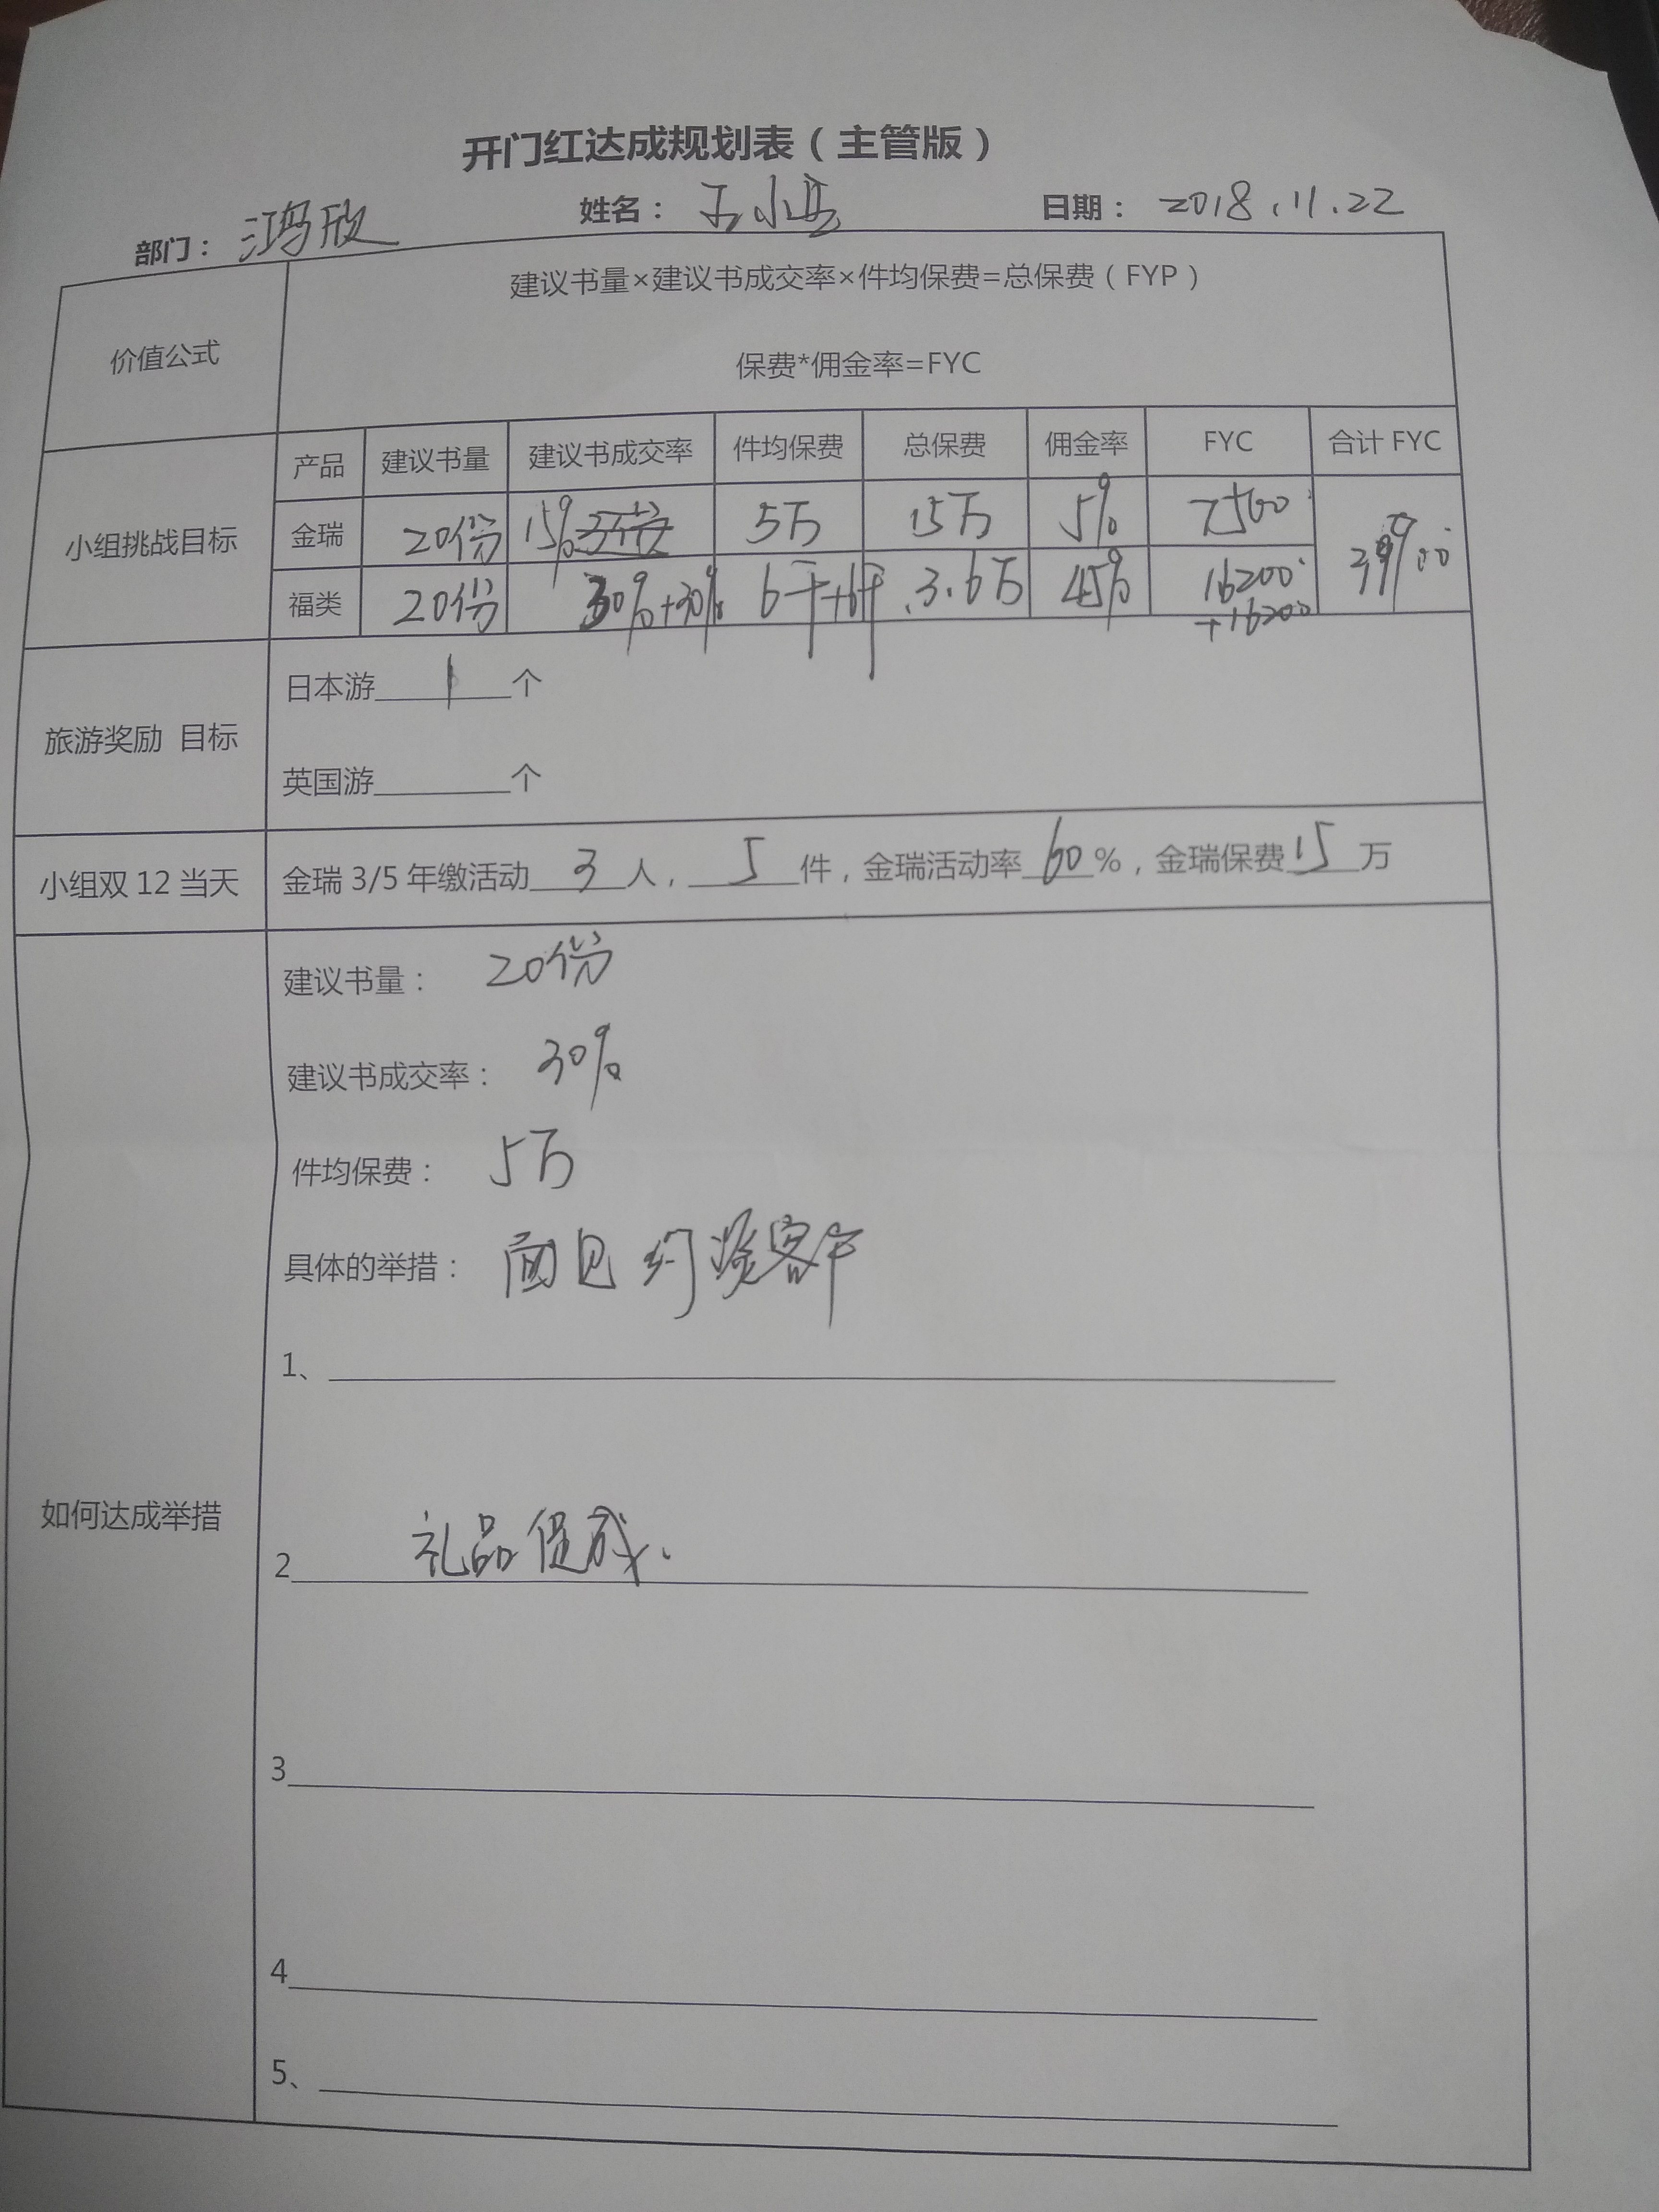 开门红达成规划表（主管版）
部门：鸿欣 姓名：王小 日期：2018.11.22
价值公式
建议书量×建议书成交率×件均保费=总保费（FYP）
保费*佣金率=FYC
小组挑战目标
产品 建议书量 建议书成交率 件均保费 总保费 佣金率 FYC 合计 FYC
金瑞 20份 15% 5万 15万 5% 7500
福类 20份 30%+30% 6千+6千 3.6万 45% 16200
+16200
39900
旅游奖励 目标
日本游 1 个
英国游______个
小组双 12 当天
金瑞 3/5 年缴活动 3 人， 5 件，金瑞活动率 60 %，金瑞保费 15 万
如何达成举措
建议书量： 20份
建议书成交率： 30%
件均保费： 5万
具体的举措： 面见约谈客户
1、
2 礼品促成.
3
4
5、